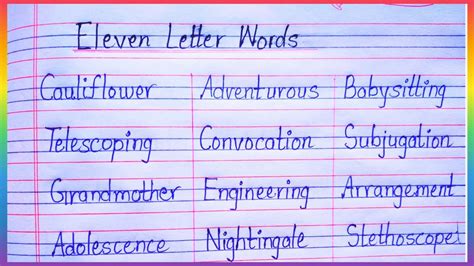 Eleven Letter Words
Cauliflower Adventurous Babysitting
Telescoping Convocation Subjugation
Grandmother Engineering Arrangement
Adolescence Nightingale Stethoscope